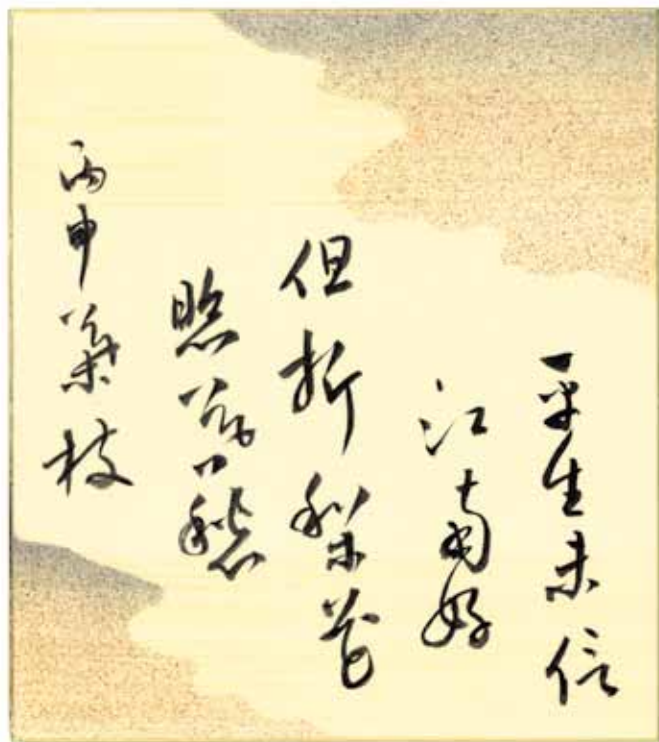 平生未信
江南好
但折梨花
照暮愁
丙申葉枝